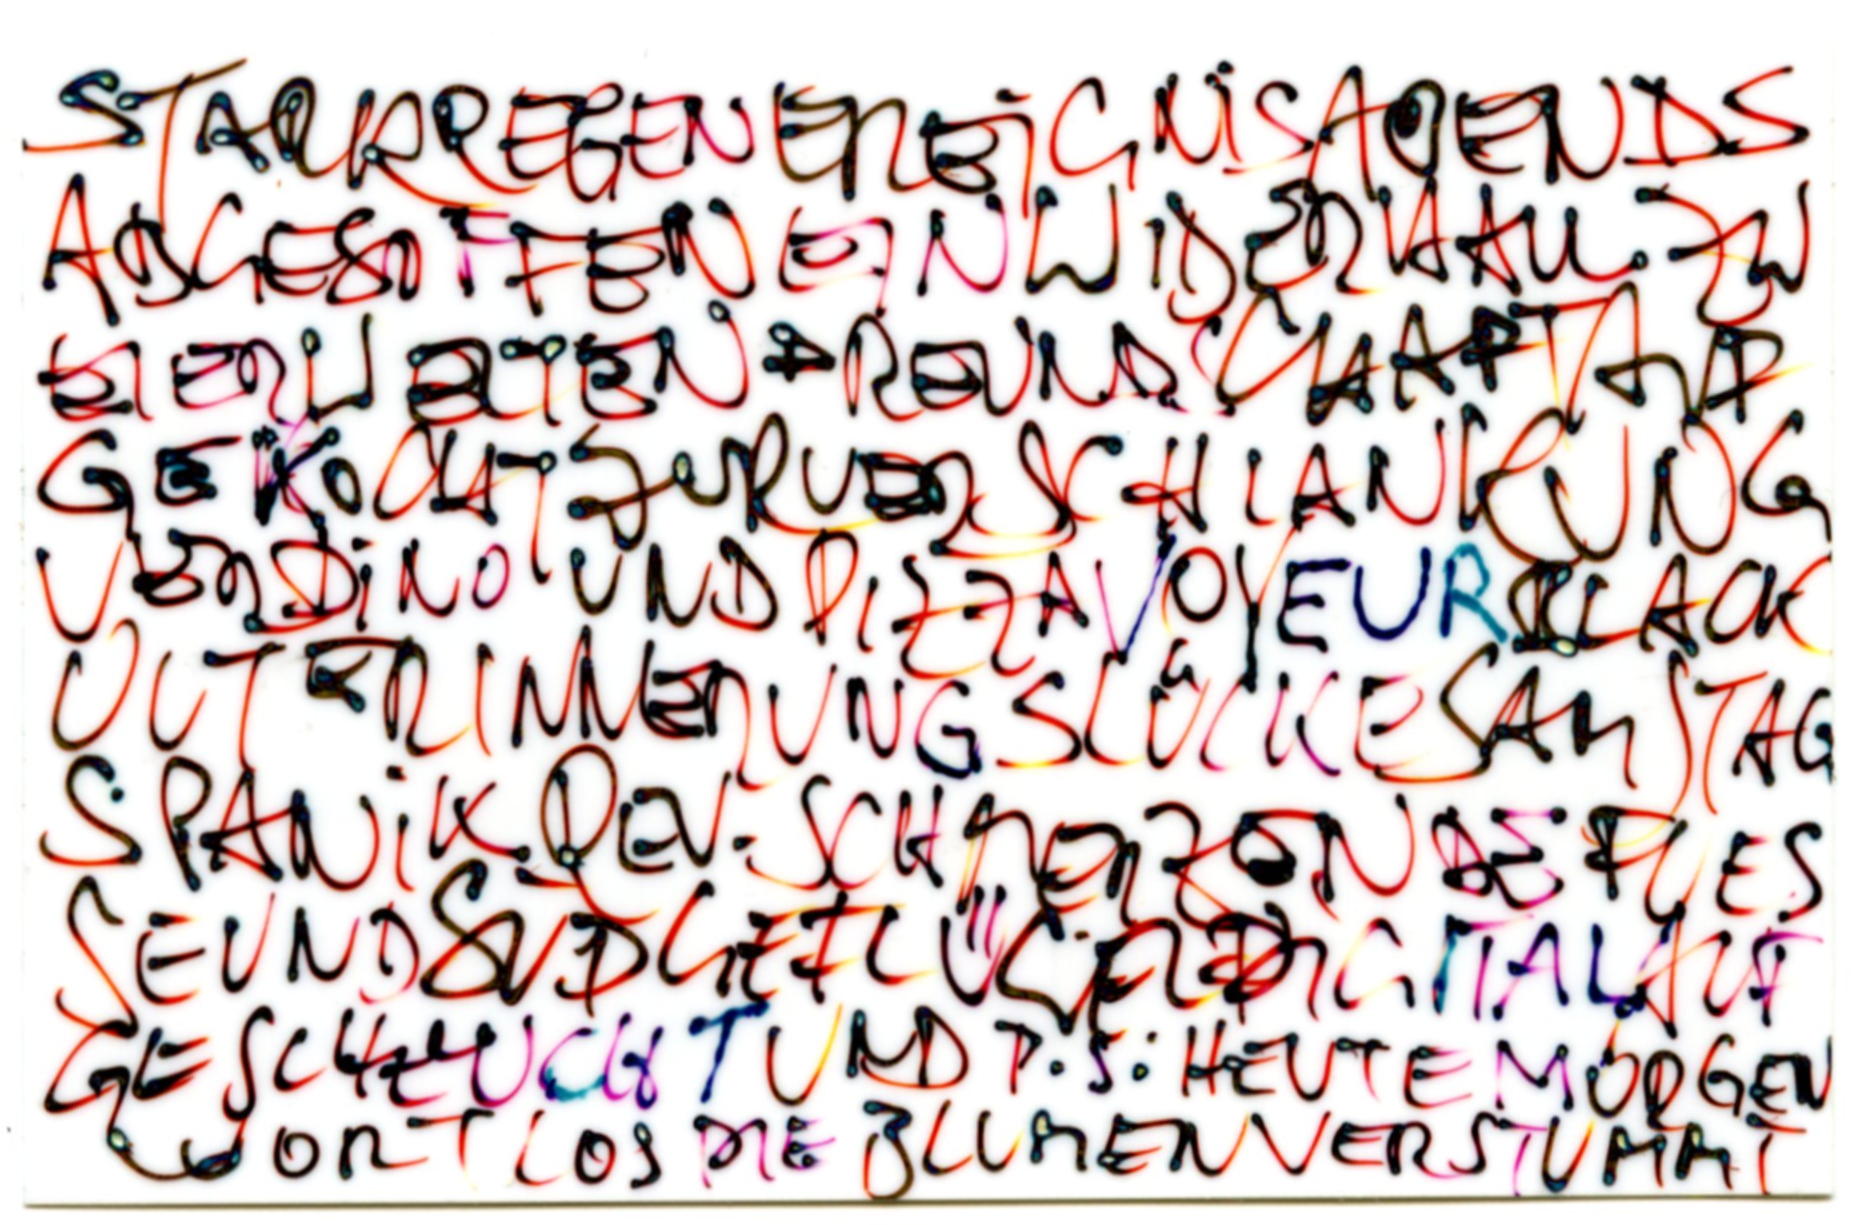 STARKREGENEREIGNIS ABENDS
ABGESOFFEN EIN WIDERHALL ZW
EIER WELTEN FREUNDSCHAFT AB
GEKOCHT ZUR VERSCHLANKUNG
VERDINO UND PIZZA VOYEUR BLACK
OUT ERINNERUNGSLÜCKE SAMSTAG
SPANIK DEN SCHMERZ ON DE PLIES
SE UND SUDGEFLÜGEL DIGITAL AUF
GESCHEUCHT UND P.S.: HEUTE MORGEN
WORTLOS DIE BLUMEN VERSTUMMT